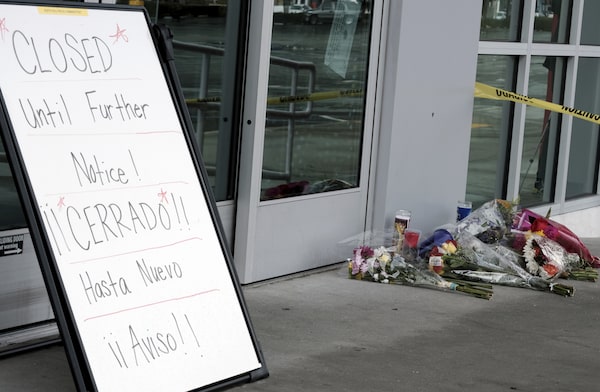 "CLOSED"
Until Further
Notice!
¡¡"CERRADO"!!
Hasta Nuevo
¡¡Aviso!!
CAUTION